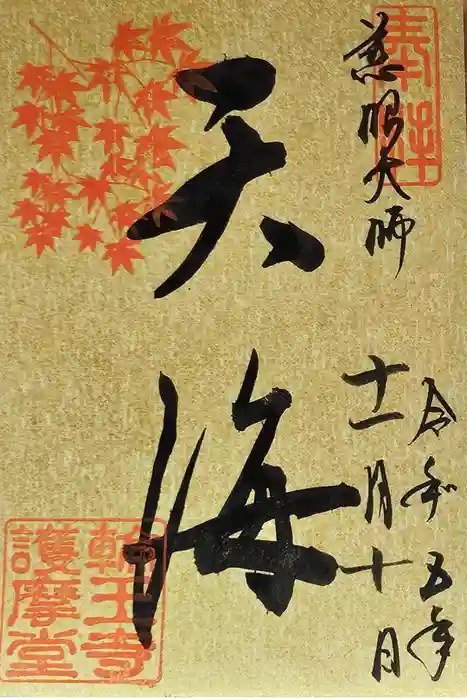 奉拝
慈眼大師
令和五年
十一月十日
天海
輪王寺
護摩堂